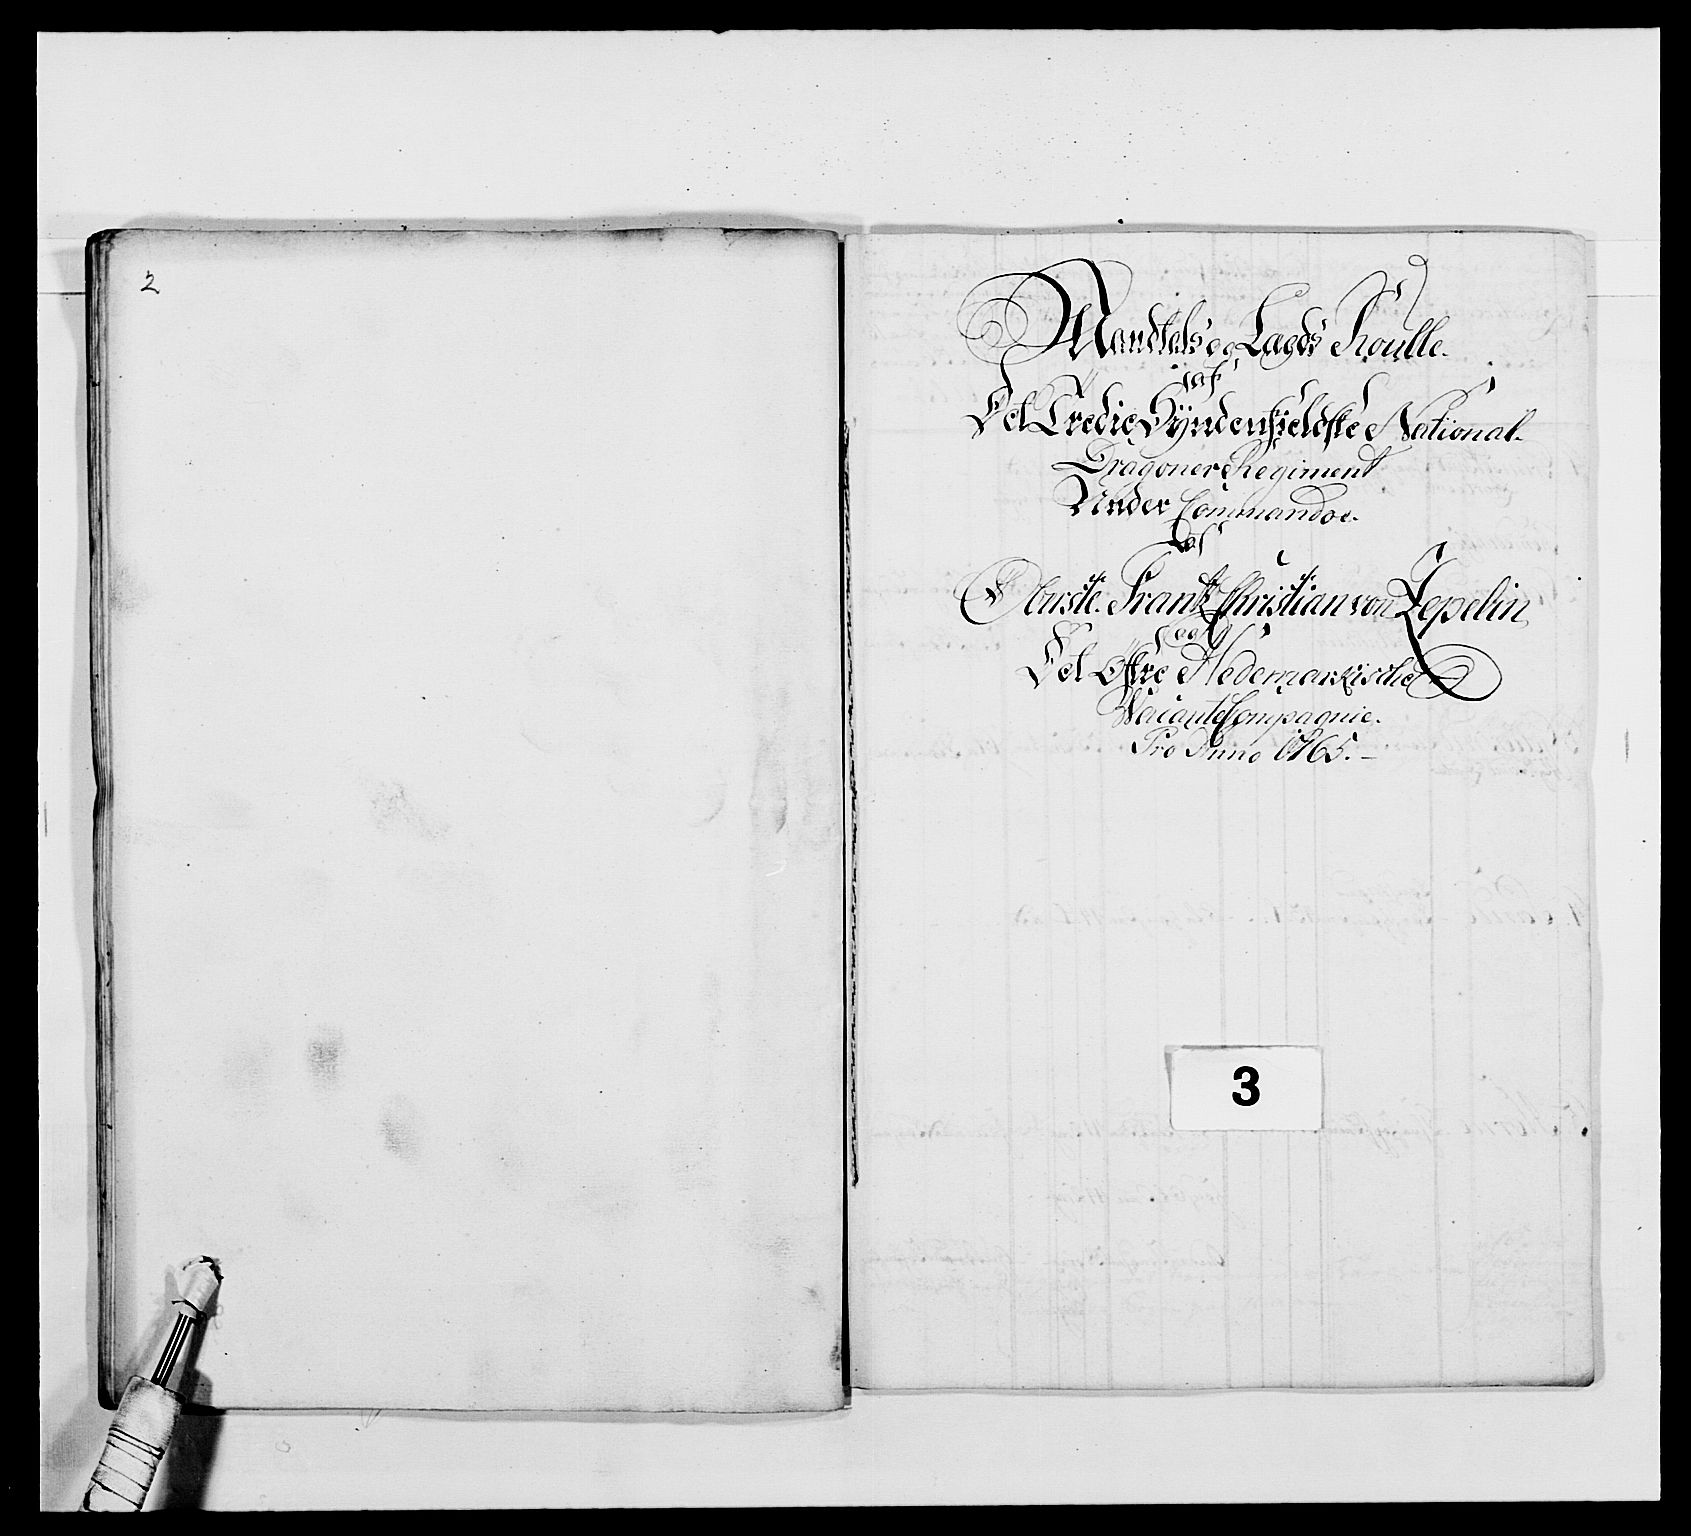 2
Mandtals og Lægds Roulle
af
Det Tredie Syndenfieldske National
Dragoner Regiment
Under Commandoe
af
Obriste Frantz Christian von Zepelin
og
Det Østre Hedemarkische
Vacante Compagnie.
Pro Anno 1765.
3